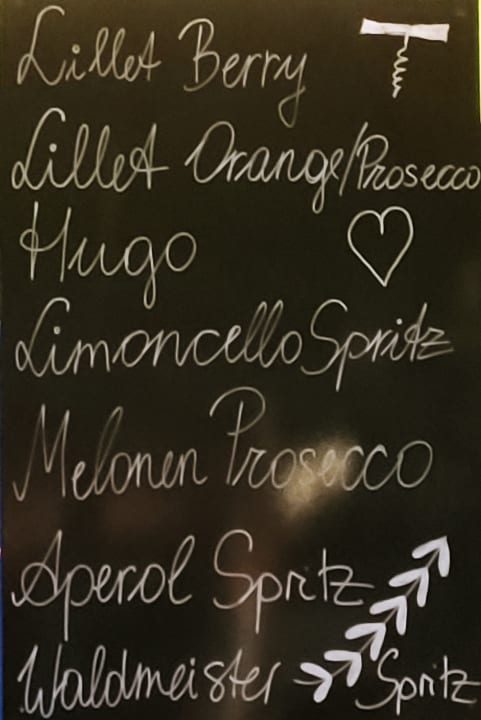 Lillet Berry
Lillet Orange/Prosecco
Hugo
Limoncello Spritz
Melonen Prosecco
Aperol Spritz
Waldmeister Spritz